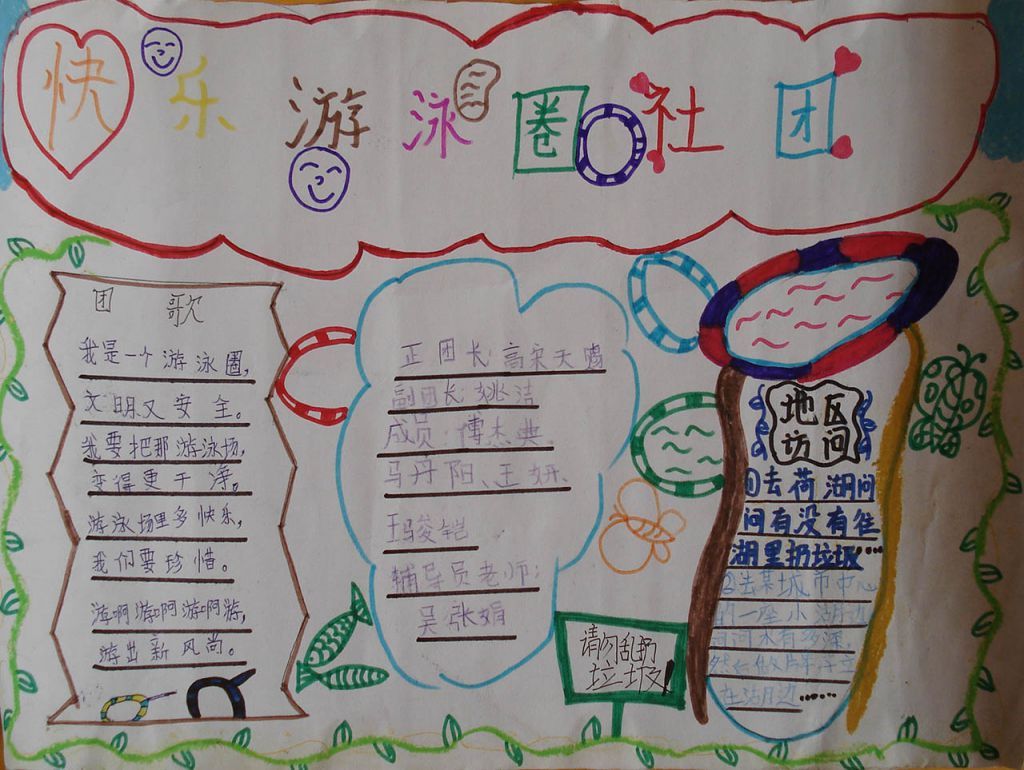 快乐游泳圈社团
团歌
我是一个游泳圈,
文明又安全。
我要把那游泳场,
变得更干净。
游泳场里多快乐,
我们要珍惜。
游啊游啊游啊游,
游出新风尚。
正团长:高宋天
副团长:姚洁
成员:傅杰典、
马丹阳、王妍、
王骏铠
辅导员老师:
吴张娟
请勿乱扔
垃圾!
地区
访问
①去荷湖问
问有没有往
湖里扔垃圾……
②去某城市中心
的一座小湖边
问河水有多深,
然后做牌子立
在湖边……